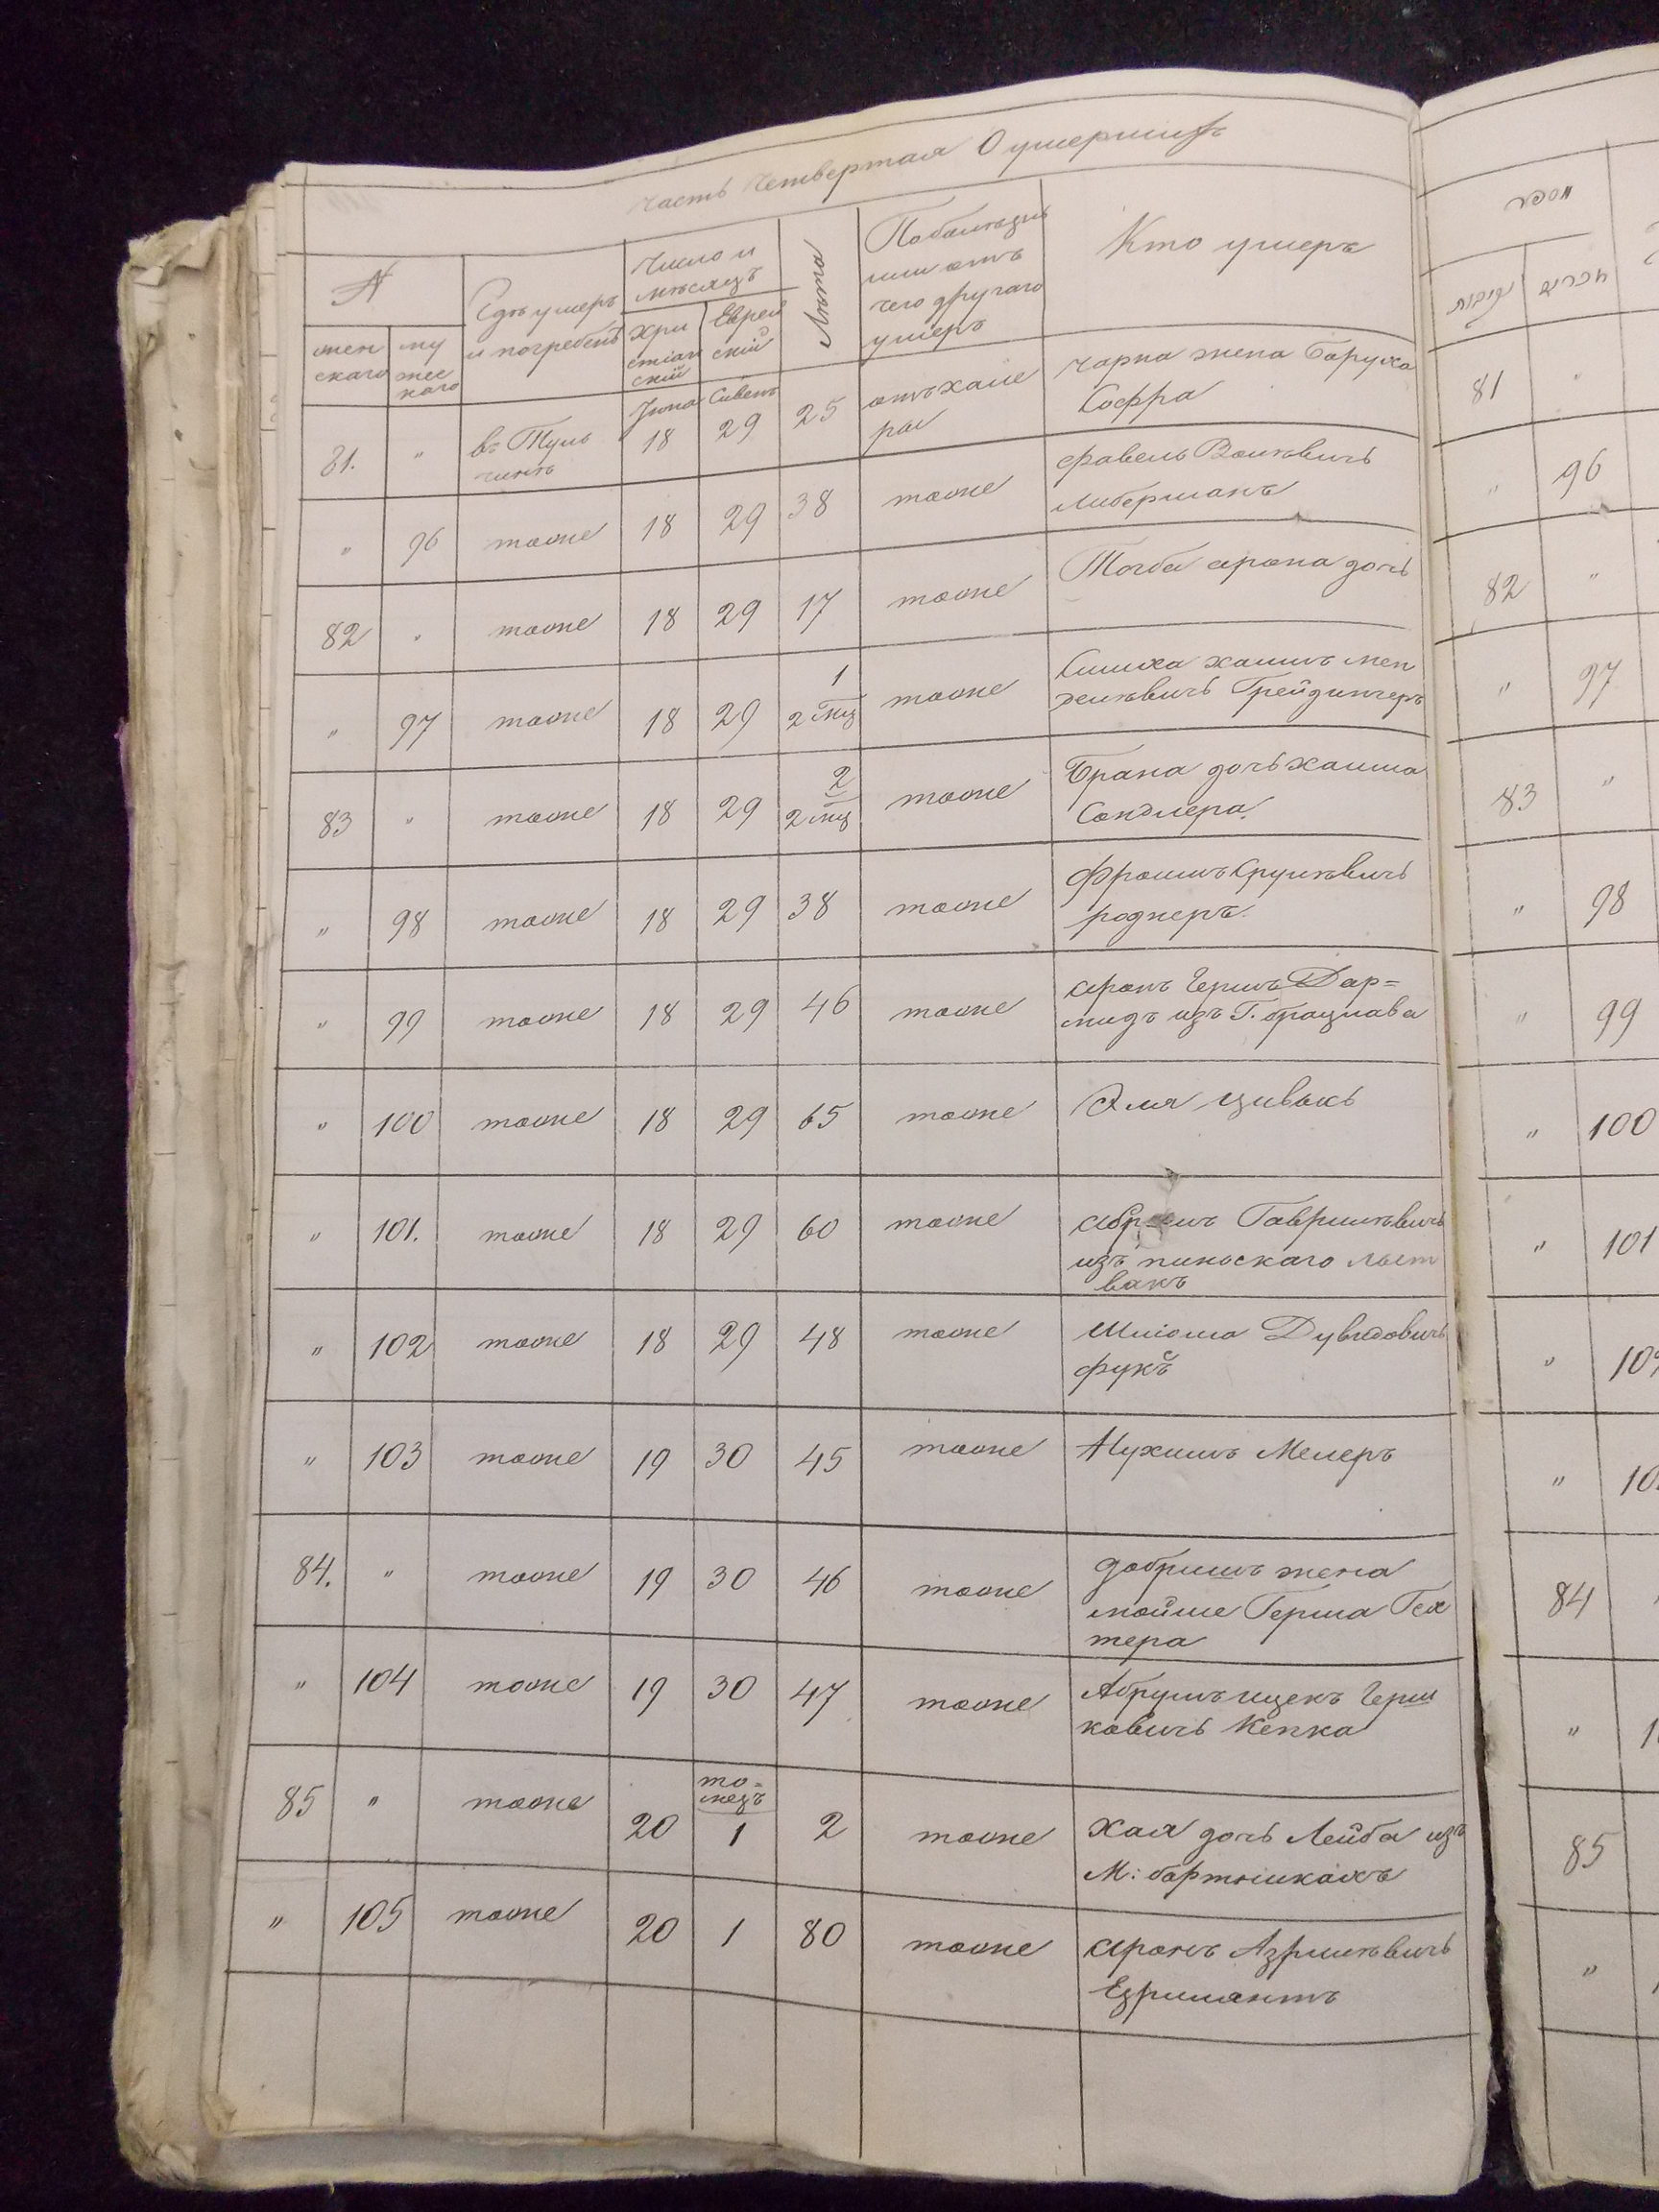 Часть Четвертая О умершихъ
№
женскаго
мужескаго
Гдѣ умеръ и погребенъ
Число и мѣсяцъ
Христіанскій
Еврейскій
Лѣта
По болѣзни или отъ чего другаго умеръ
Кто умеръ
Іюна Сивенъ
81. " въ Тульчинѣ 18 29 25 отъ халеры Чарна жена Баруха
Софра
" 96 тоже 18 29 38 тоже Фавель Волковичъ
Либерманъ
82 " тоже 18 29 17 тоже Тогба арона дочь
" 97 тоже 18 29 1 2 мц тоже Симха хаимъ Мен
делѣвичъ Грейдингеръ
83 " тоже 18 29 2 2 мц тоже Брана дочь хаима
Сандлера
" 98 тоже 18 29 38 тоже Фроимъ Срулѣвичъ
роднеръ.
" 99 тоже 18 29 46 тоже аронъ Гершъ Дар=
мидъ изъ Г. брацлава
" 100 тоже 18 29 65 тоже Эля цивакъ
" 101. тоже 18 29 60 тоже абрамъ Гаврилѣвичъ
изъ пинскаго лыт
вакъ
" 102 тоже 18 29 48 тоже Шліома Дувидовичъ
фукъ
" 103 тоже 19 30 45 тоже Нухимъ Мелеръ
84. " тоже 19 30 46 тоже добришъ жена
мойше Герша Гех
тера
" 104 тоже 19 30 47 тоже Абрумъ ицекъ Герш
ковичъ Кепка
85 " тоже 20 то=
мезъ
1 2 тоже Хая дочь Лейба изъ
М: бартникахъ
" 105 тоже 20 1 80 тоже аронъ Азрилѣвичъ
מספר
81 "
" 96
82 "
" 97
83 "
" 98
" 99
" 100
" 101
84
85